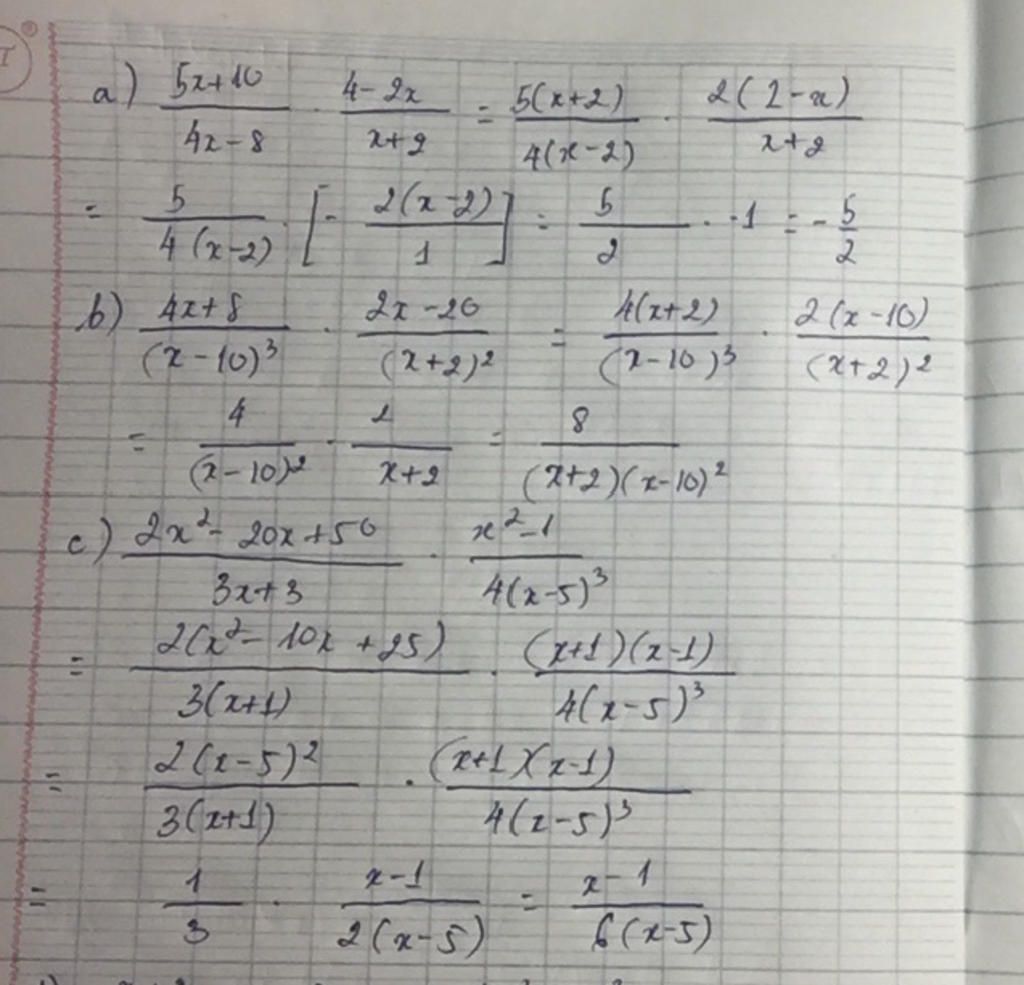 a) \frac{5x+10}{4x-8} \cdot \frac{4-2x}{x+2} = \frac{5(x+2)}{4(x-2)} \cdot \frac{2(2-x)}{x+2}
= \frac{5}{4(x-2)} \cdot \left[-\frac{2(x-2)}{1}\right] = \frac{5}{2} \cdot -1 = -\frac{5}{2}
b) \frac{4x+8}{(x-10)^3} \cdot \frac{2x-20}{(x+2)^2} = \frac{4(x+2)}{(x-10)^3} \cdot \frac{2(x-10)}{(x+2)^2}
= \frac{4}{(x-10)^2} \cdot \frac{2}{x+2} = \frac{8}{(x+2)(x-10)^2}
c) \frac{2x^2-20x+50}{3x+3} \cdot \frac{x^2-1}{4(x-5)^3}
= \frac{2(x^2-10x+25)}{3(x+1)} \cdot \frac{(x+1)(x-1)}{4(x-5)^3}
= \frac{2(x-5)^2}{3(x+1)} \cdot \frac{(x+1)(x-1)}{4(x-5)^3}
= \frac{1}{3} \cdot \frac{x-1}{2(x-5)} = \frac{x-1}{6(x-5)}